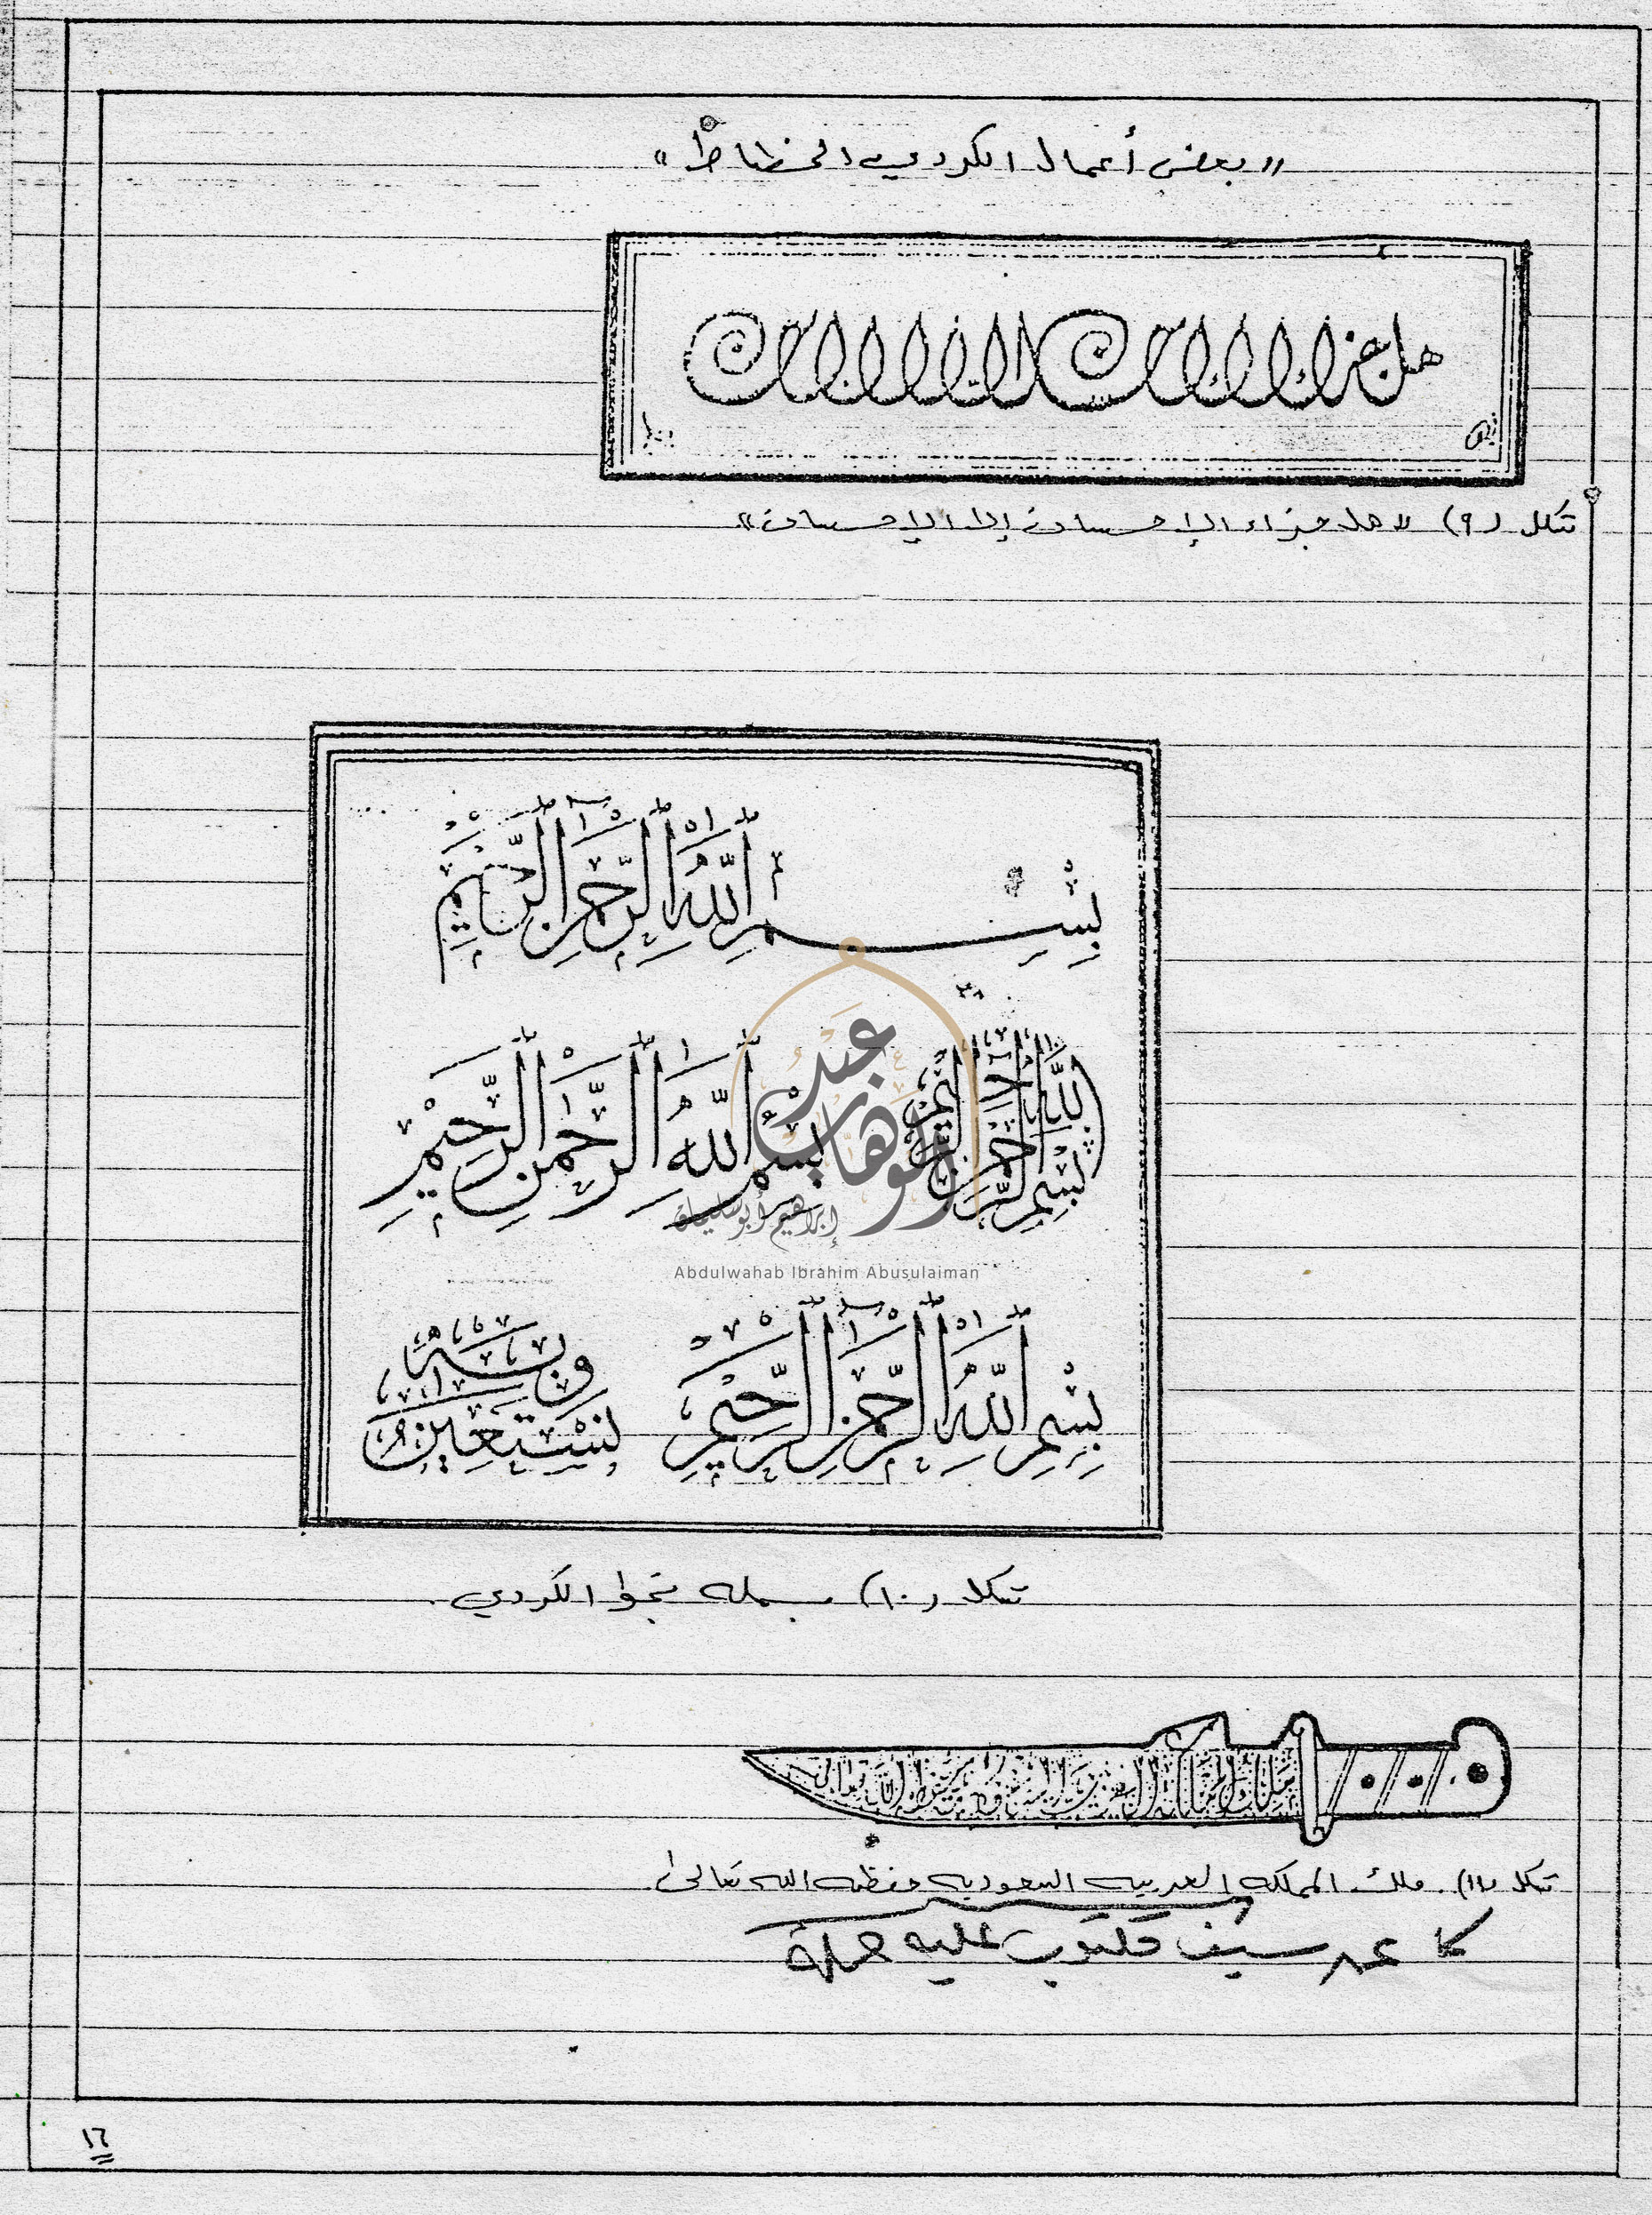 «بعض أعمال الكردي الخطاط»
هل جزاء الإحسان إلا الإحسان
شكل (٩) «هل جزاء الإحسان إلا الإحسان»
بِسْمِ اللَّهِ الرَّحْمَنِ الرَّحِيمِ
بِسْمِ اللَّهِ الرَّحْمَنِ الرَّحِيمِ بِسْمِ اللَّهِ الرَّحْمَنِ الرَّحِيمِ
بِسْمِ اللَّهِ الرَّحْمَنِ الرَّحِيمِ وَبِهِ نَسْتَعِينُ
عبد الوهاب
إبراهيم أبو سليمان
Abdulwahab Ibrahim Abusulaiman
شكل (١٠) بسملة بخط الكردي.
ملك المملكة العربية السعودية حفظه الله تعالى
شكل (١١). ملك المملكة العربية السعودية حفظه الله تعالى.
سيف مكتوب عليه جملة
١٦